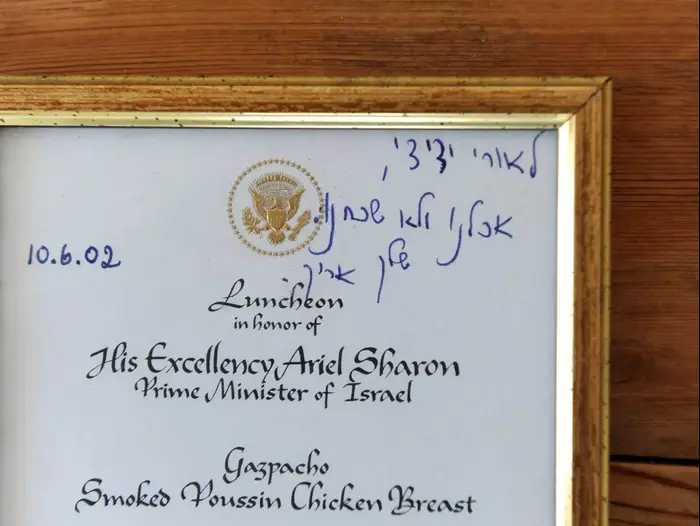 לאורי ידידי,
אכלנו ולא שכחנו.
שלך אריק.
10.6.02
Luncheon
in honor of
His Excellency Ariel Sharon
Prime Minister of Israel
Gazpacho
Smoked Poussin Chicken Breast